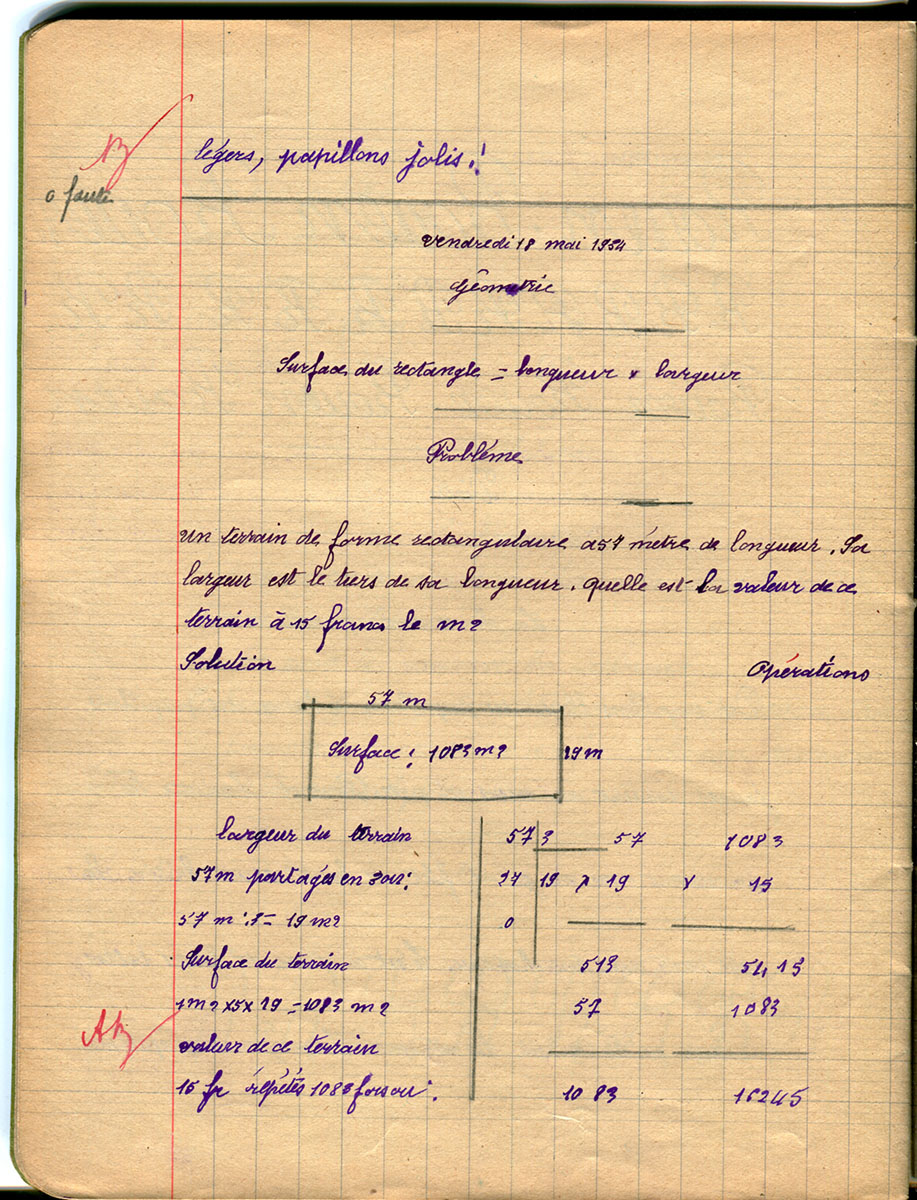 B
0 faute
légers, papillons jolis.!
Vendredi 18 mai 1954
Géométrie
Surface du rectangle = longueur x largeur
Problème
Un terrain de forme rectangulaire a 57 mètre de longueur. Sa
largeur est le tiers de sa longueur. quelle est la valeur de ce
terrain à 15 francs le m2
Solution
Opérations
57 m
Surface : 1083 m2
19 m
largeur du terrain
57m partagés en 3 ou:
57 m : 3 = 19 m2
Surface du terrain
1m2 x 5 x 19 = 1083 m2
valeur de ce terrain
15 fr répétés 1083 fois ou :
57 3
27 19
0
57
x 19
513
57
1083
1083
x 15
5415
1083
16245